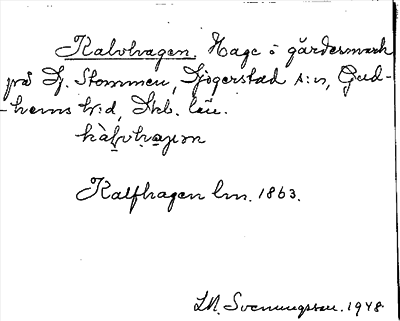 Kalvhagen, Hage i gärdesmark
på Lj. Stommen, Ljögerstad s:n, Gud-
-hems h:d, Skb. län.
kàlvhagen
Kalfhagen lm. 1863.
Svenungsson. 1948